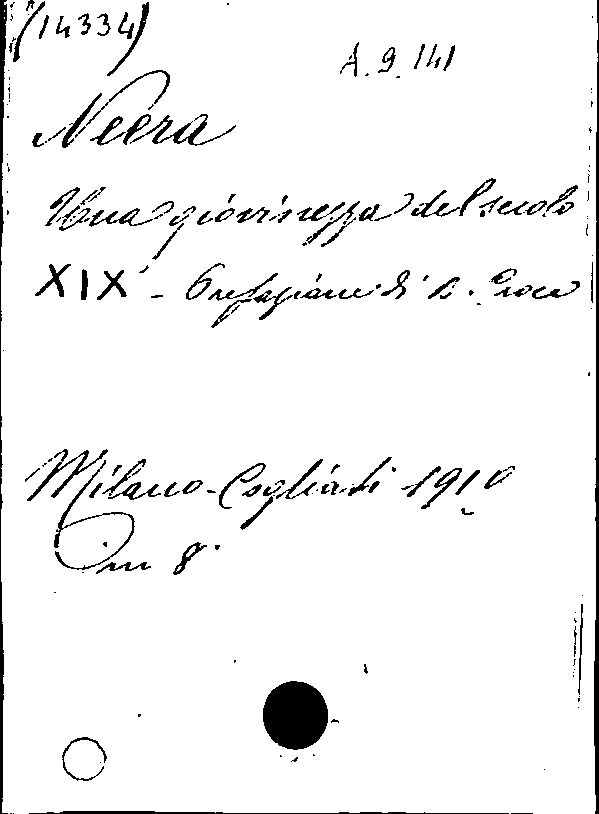 (14334)
A. 9. 141
Neera
Una giovinezza del secolo
XIX - Prefazione di B. Croce
Milano - Cogliati 1910
in 8°